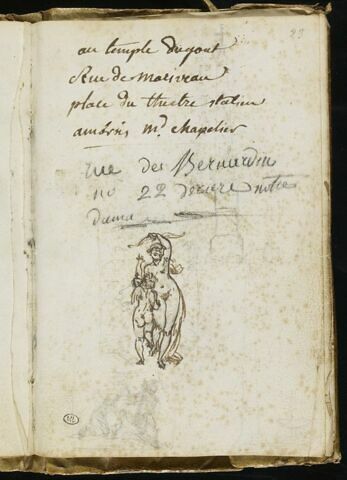 23
au temple du gout
Rue de Marivau
place du theatre italien
ambrois md. chapelier
rue des Bernardin
no 22 deriere notre
dame